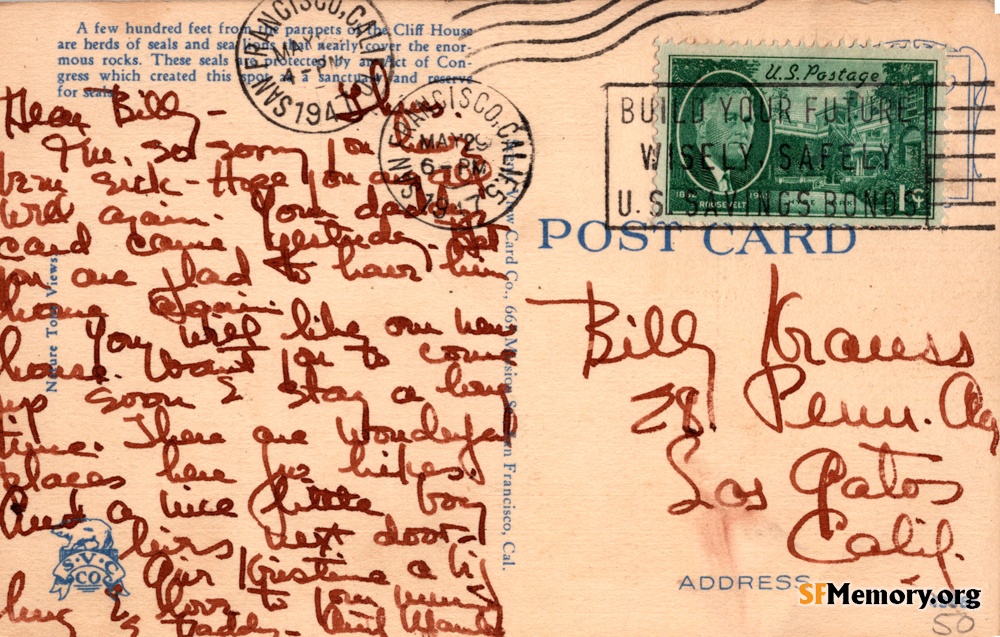 A few hundred feet from the parapets of the Cliff House
are herds of seals and sea lions that nearly cover the enor-
mous rocks. These seals are protected by an Act of Con-
gress which created this spot as a sanctuary and reserve
for seals.
SAN FRANCISCO, CALIF.
MAY
4 - PM
1947
SAN FRANCISCO, CALIF.
MAY 29
6 - PM
1947
Dear Billy -
Thurs.
I'm so sorry you have
been sick - Hope you are all
well again. Your daddy's
card came yesterday - Bet
you are glad to have him
home again.
You will like our new
house. Want you to come
up soon & stay a long
time. There are wonderful
places here for hikes.
And a nice little boy
lives next door -
Give Kristina a big
hug & love to your mummy
& Daddy -
Nature Tone Views
View Card Co., Mission St., San Francisco, Cal.
S.V.C.
CO
U.S. Postage
ROOSEVELT
HYDE PARK
1¢
BUILD YOUR FUTURE
WISELY SAFELY
U.S. SAVINGS BONDS
POST CARD
Billy Krauss
281 Penn. Ave
Los Gatos
Calif.
ADDRESS
SFMemory.org
50